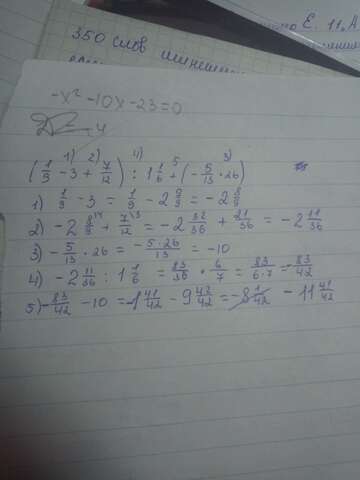 350 слов
Е. 11,А
-x² -10x -23=0
D = 4
1) 2) 4) 5 3)
(1/9 - 3 + 7/12) : 1 1/6 + (- 5/13 · 26)
1) 1/9 - 3 = 1/9 - 2 9/9 = -2 8/9
2) -2 8/9 \4 + 7/12 \3 = -2 32/36 + 21/36 = -2 11/36
3) - 5/13 · 26 = -5·26/13 = -10
4) -2 11/36 : 1 1/6 = 83/36 · 6/7 = 83/6·7 = -83/42
5) -83/42 -10 = -1 41/42 - 9 42/42 = -8 1/42 - 11 41/42